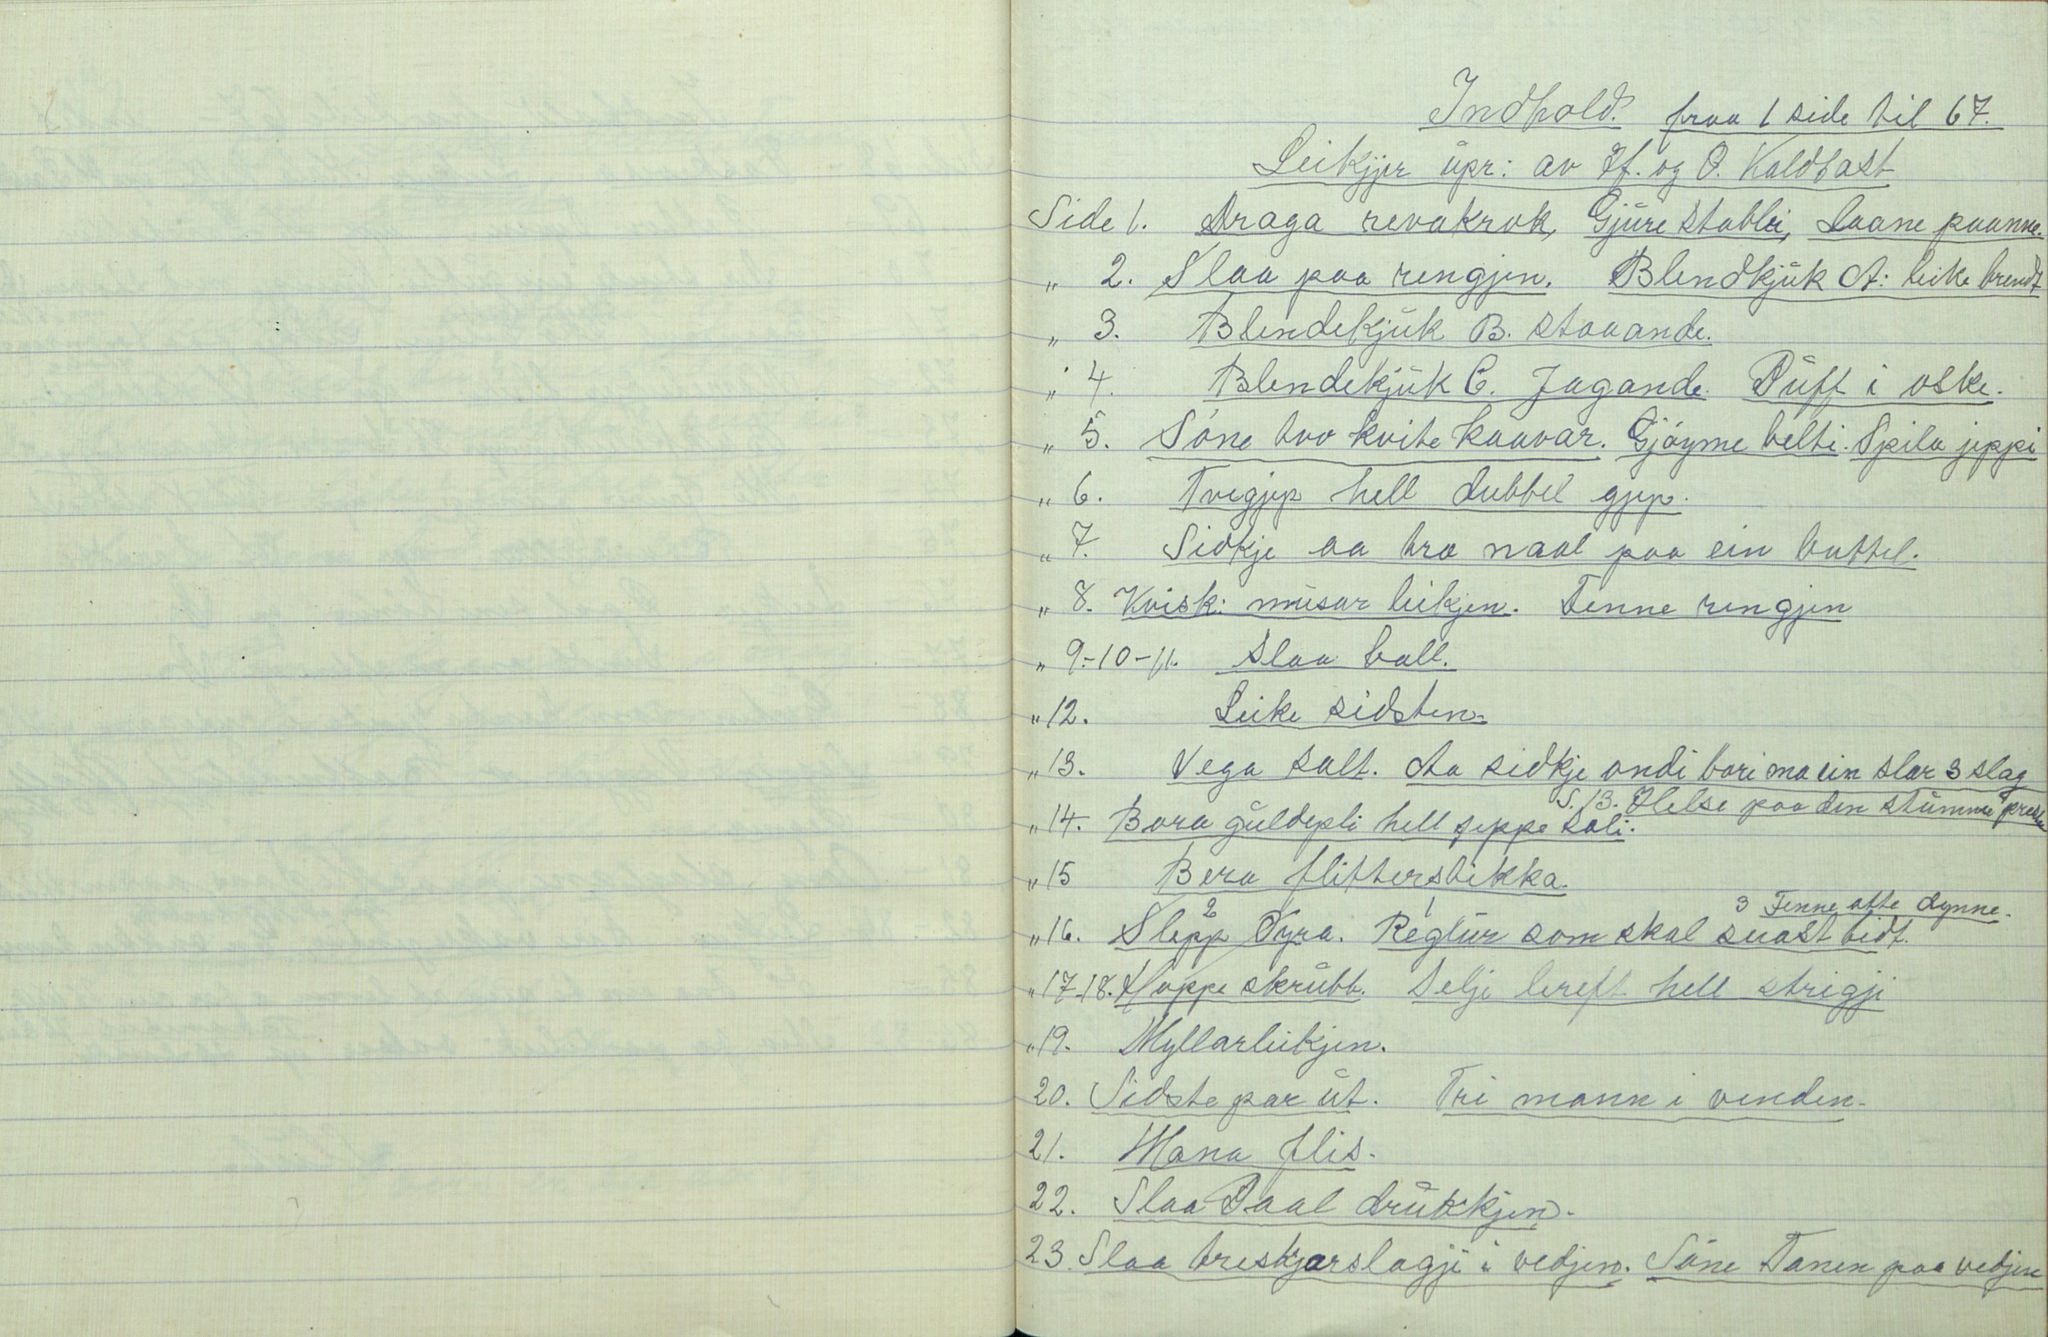 Indhold. fraa 1 side til 67.
Leikjer üpr: av Hf. og O. Kaldhast
Side 1. Draga revakrok, Gjüre stabbi, Laane paanne.
" 2. Slaa paa rengjen. Blendkjük A: leike brendt
" 3. Blendekjük B. staaande.
" 4. Blendekjük C. Jagande. Püff i oske.
" 5. Söne tvo kvite kaavar. Gjöyme belti. Spila jeppi
" 6. Tvegjep hell dubbel gjep.
" 7. Sidkje aa træ naal paa ein buttel.
" 8. Kvisk: müsar leikjen. Fenne rengjen
" 9.-10-11. Slaa ball.
" 12. Leike sidsten.
" 13. Vega salt. Aa sidkje ondi bori ma ein slær 3 slag
S. 13. Helse paa den stümme
" 14. Bora güldepli hell jeppe sali.
" 15 Bera flitterstikka.
3 Fenne atte dynne.
" 16. Slepp 2 Fyra. Reglür 1 som skal snast tidt.
" 17-18. Hoppe skrübb. Selji lereft hell strigji
" 19. Myllarleikjen.
20. Sidste par üt. Tri mann i venden.
21. Mana flis.
22. Slaa Paal drükkjen.
23. Slaa treskjarslagji i vedjen. Söne Fanen paa vedjen